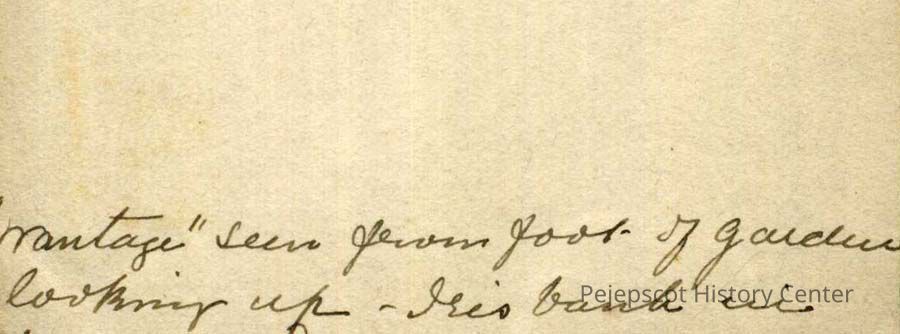 "Vantage" seen from foot of garden
looking up - Iris bank in
Pejepscot History Center